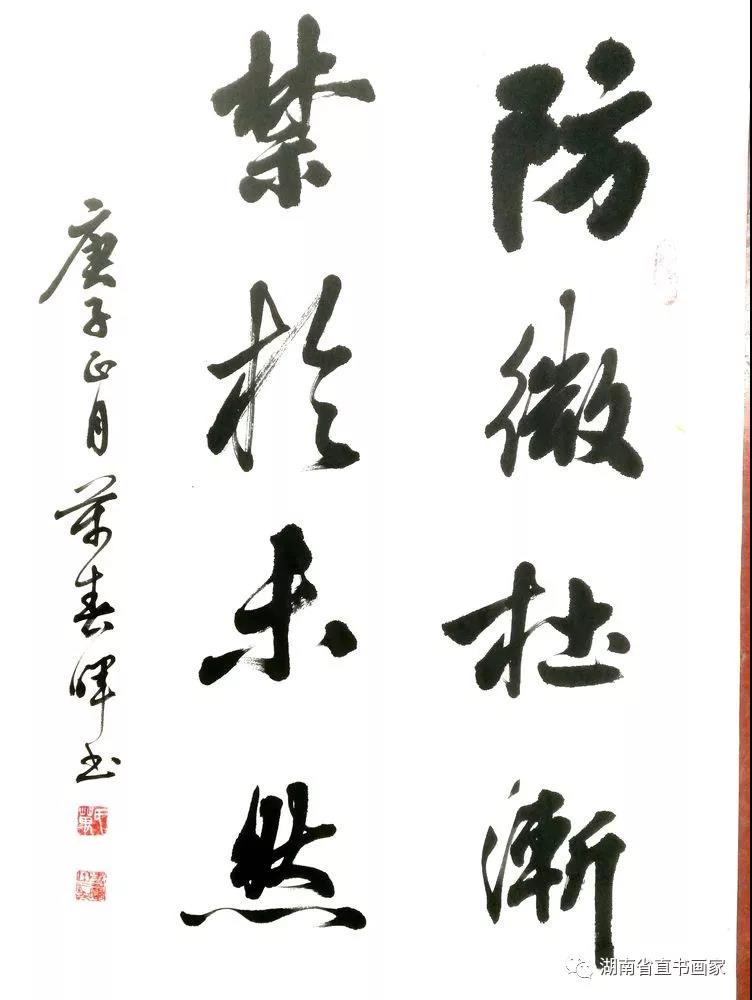 防微杜漸
禁於未然
庚子正月萬春暉书
湖南省直书画家